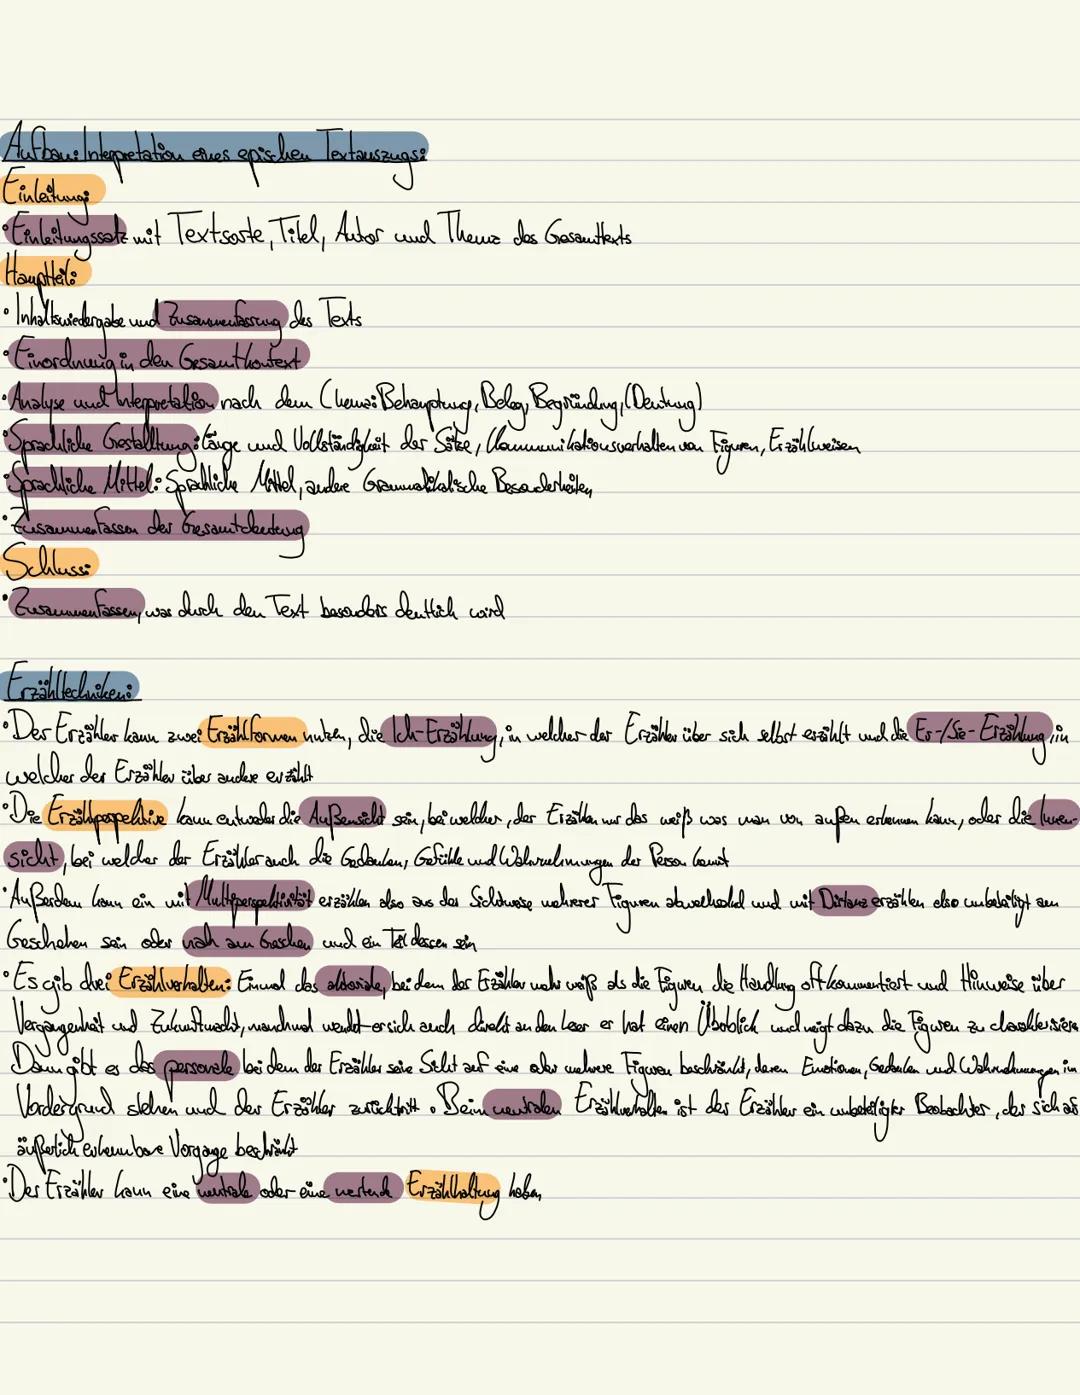 Aufbau: Interpretation eines epischen Textauszugs:
Einleitung:
• Einleitungssatz mit Textsorte, Titel, Autor und Thema des Gesamttexts
Hauptteil:
• Inhaltswiedergabe und Zusammenfassung des Texts
• Einordnung in den Gesamtkontext
• Analyse und Interpretation nach dem Chema: Behauptung, Beleg, Begründung, (Deutung)
• Sprachliche Gestalltung: Länge und Vollständigkeit der Sätze, Kommunikationsverhalten von Figuren, Erzählweisen
• Sprachliche Mittel: Sprachliche Mittel, andere Grammatikalische Besonderheiten
• Zusammenfassen der Gesamtdeutung
Schluss:
• Zusammenfassen, was durch den Text besonders deutlich wird
Erzähltechniken:
• Der Erzähler kann zwei Erzählformen nutzen, die Ich-Erzählung, in welcher der Erzähler über sich selbst erzählt und die Er-/Sie-Erzählung, in
welcher der Erzähler über andere erzählt
• Die Erzählperspektive kann entweder die Außensicht sein, bei welcher, der Erzähler nur das weiß was man von außen erkennen kann, oder die Innen-
sicht, bei welcher der Erzähler auch die Gedanken, Gefühle und Wahrnehmungen der Person kennt
• Außerdem kann ein mit Multiperspektivität erzählen also aus der Sichtweise mehrerer Figuren abwechselnd und mit Distanz erzählen also unbeteiligt am
Geschehen sein oder nah am Geschen und ein Teil dessen sein
• Es gib drei Erzählverhalten: Einmal das auktoriale, bei dem der Erzähler mehr weiß als die Figuren die Handlung oft kommentiert und Hinweise über
Vergangenheit und Zukunft macht, manchmal wendet er sich auch direkt an den Leser er hat einen Überblick und neigt dazu die Figuren zu charakterisieren
Dann gibt es das personale bei dem der Erzähler seine Sicht auf eine oder mehrere Figuren beschränkt, deren Emotionen, Gedanken und Wahrnehmungen im
Vordergrund stehen und der Erzähler zurücktritt. Beim neutralen Erzählverhalten ist der Erzähler ein unbeteiligter Beobachter, der sich auf
äußerlich erkennbare Vorgänge beschränkt
• Der Erzähler kann eine neutrale oder eine wertende Erzählhaltung haben,